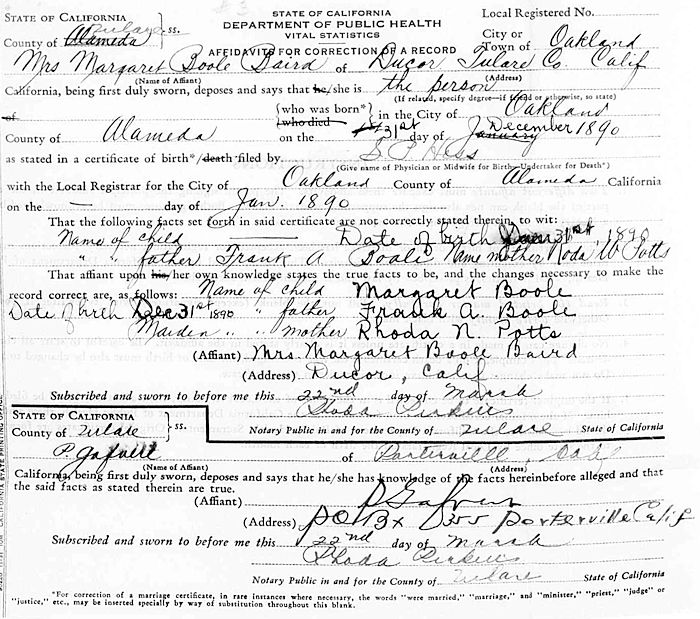 STATE OF CALIFORNIA
County of Alameda Tulare } ss.
STATE OF CALIFORNIA
DEPARTMENT OF PUBLIC HEALTH
VITAL STATISTICS
AFFIDAVITS FOR CORRECTION OF A RECORD
Local Registered No.
City or Town of Oakland
Mrs Margaret Boole Baird of Ducor Tulare Co. Calif
(Name of Affiant) (Address)
California, being first duly sworn, deposes and says that he/she is the person
(If related, specify degree—if friend or otherwise, so state)
of {who was born* / who died} in the City of Oakland
County of Alameda on the 31st day of January December 1890
as stated in a certificate of birth*/death filed by S P Hess
(Give name of Physician or Midwife for Birth—Undertaker for Death*)
with the Local Registrar for the City of Oakland County of Alameda California
on the — day of Jan. 1890
That the following facts set forth in said certificate are not correctly stated therein, to wit:
Name of child — Date of birth 31st, 1890
" " father Frank A Boals Name mother Noda W Potts
That affiant upon his/her own knowledge states the true facts to be, and the changes necessary to make the
record correct are, as follows: Name of child Margaret Boole
Date of birth Dec 31st 1890 " " father Frank A. Boole
Maiden " " mother Rhoda N. Potts
(Affiant) Mrs. Margaret Boole Baird
(Address) Ducor, Calif
Subscribed and sworn to before me this 22nd day of March
Rhoda Perkins
Notary Public in and for the County of Tulare State of California
STATE OF CALIFORNIA
County of Tulare } ss.
P. of Porterville, Calif
(Name of Affiant) (Address)
California, being first duly sworn, deposes and says that he/she has knowledge of the facts hereinbefore alleged and that
the said facts as stated therein are true.
(Affiant) P
(Address) PO Bx 355 Porterville Calif
Subscribed and sworn to before me this 22nd day of March
Rhoda Perkins
Notary Public in and for the County of Tulare State of California
*For correction of a marriage certificate, in rare instances where necessary, the words "were married," "marriage," and "minister," "priest," "judge" or
"justice," etc., may be inserted specially by way of substitution throughout this blank.